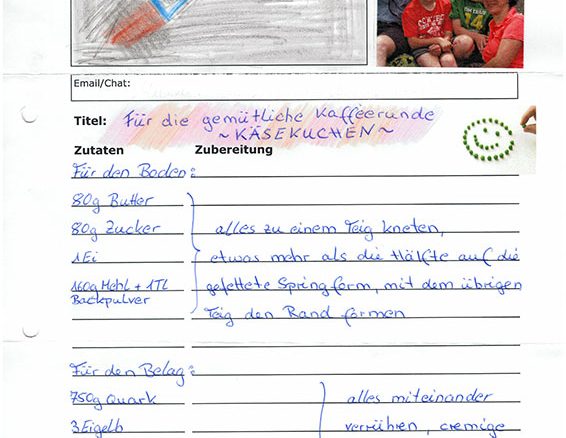 Email/Chat:
Titel: Für die gemütliche Kaffeerunde
~ KÄSEKUCHEN ~
Zutaten Zubereitung
Für den Boden:
80g Butter
80g Zucker alles zu einem Teig kneten,
1 Ei etwas mehr als die Hälfte auf die
160g Mehl + 1TL gefettete Springform, mit dem übrigen
Backpulver
Teig den Rand formen
Für den Belag:
750g Quark alles miteinander
3 Eigelb verrühren, cremige